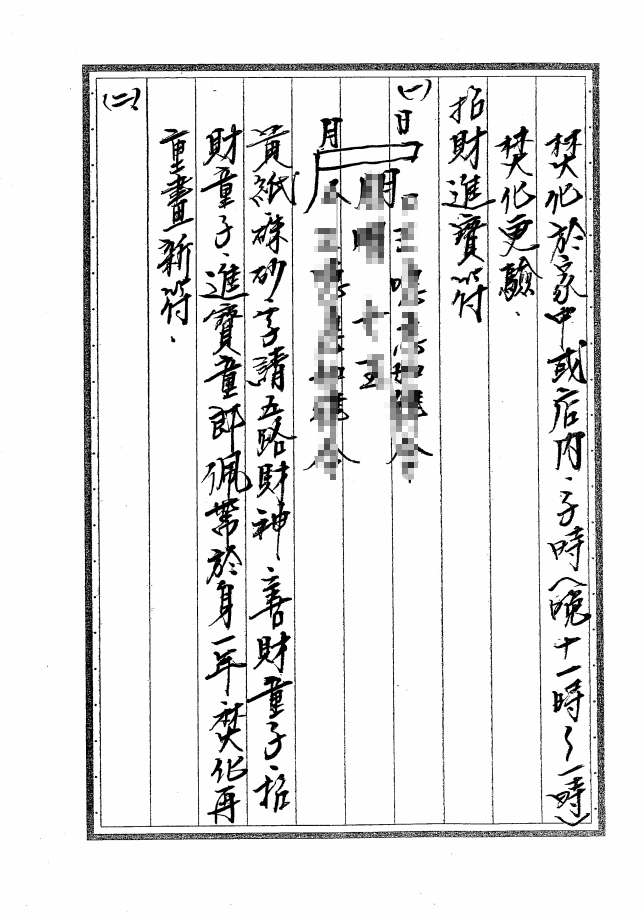 焚化於家中或店内、子時(晚十一時~一時)
焚化更驗、
招財進寶符
(一)
日
月
黃紙硃砂、字請五路財神、善財童子、招
財童子、進寶童郎佩帶於身一年、焚化再
重畫新符、
(二)